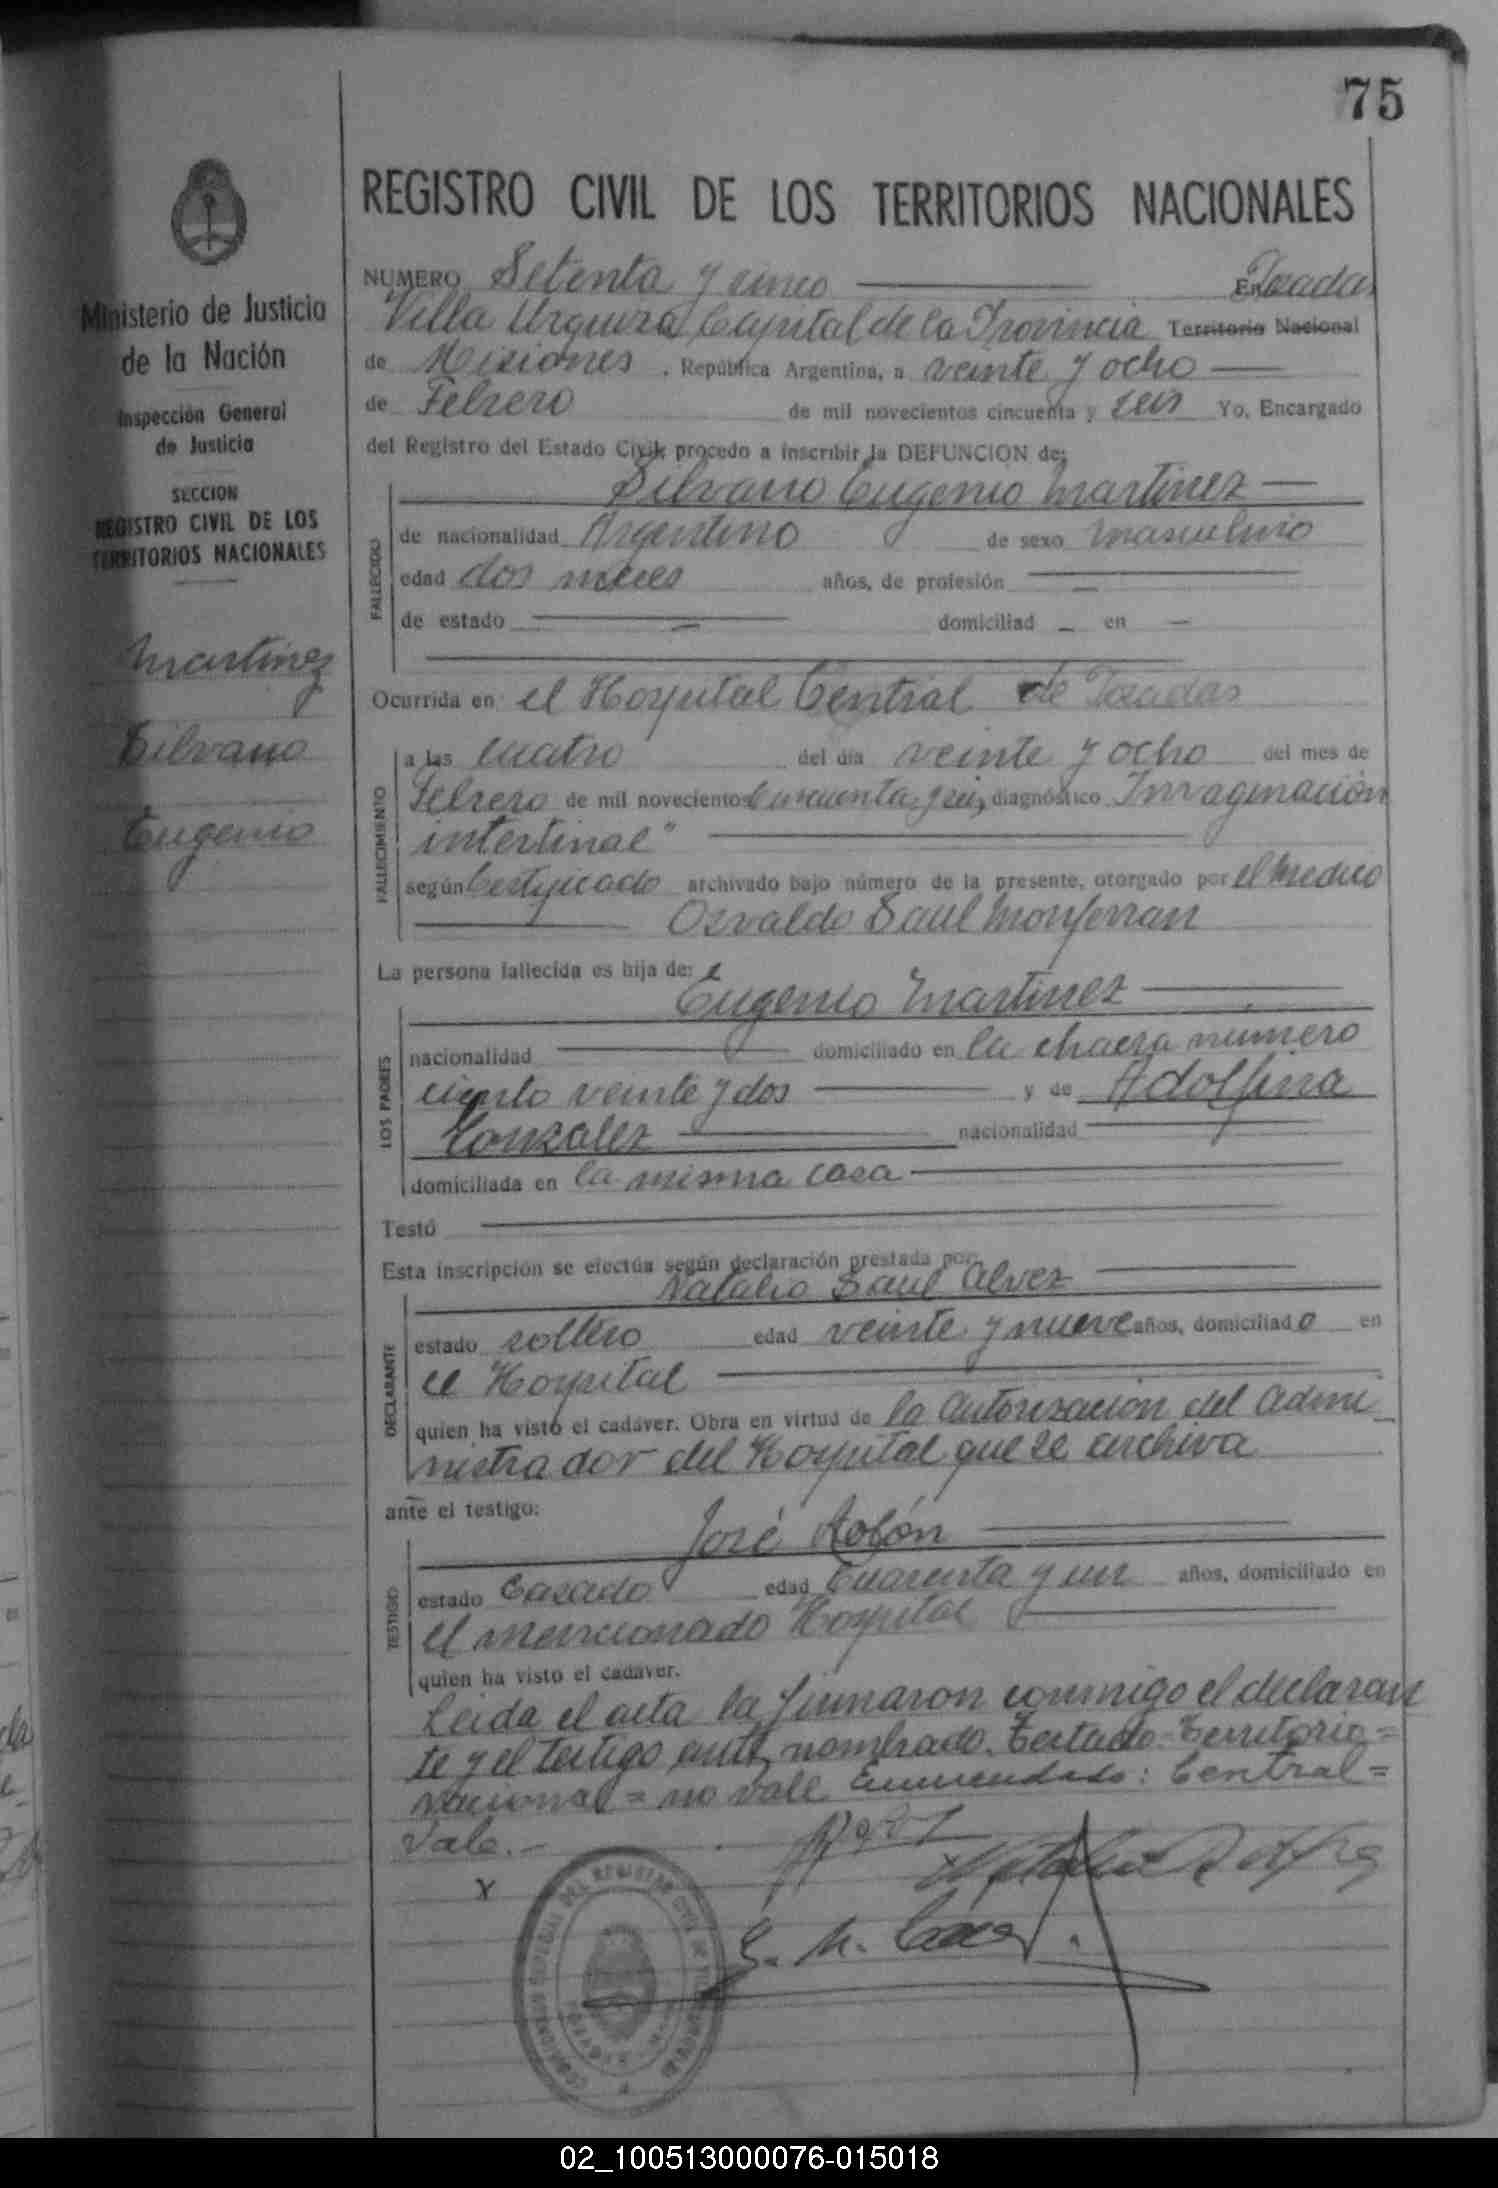 75
REGISTRO CIVIL DE LOS TERRITORIOS NACIONALES
Ministerio de Justicia
de la Nación
Inspección General
de Justicia
SECCION
REGISTRO CIVIL DE LOS
TERRITORIOS NACIONALES
Martinez
Silvano
Eugenio
NUMERO Setenta y cinco En Posadas
Villa Urquiza Capital de la Provincia Territorio Nacional
de Misiones, República Argentina, a veinte y ocho
de Febrero de mil novecientos cincuenta y seis Yo, Encargado
del Registro del Estado Civil, procedo a inscribir la DEFUNCION de:
Silvano Eugenio Martinez
FALLECIDO
de nacionalidad Argentino de sexo masculino
edad dos meses años, de profesión
de estado domiciliad en
Ocurrida en el Hospital Central de Posadas
FALLECIMIENTO
a las cuatro del día veinte y ocho del mes de
Febrero de mil novecientos cincuenta y seis, diagnóstico Invaginación
intestinal"
según Certificado archivado bajo número de la presente, otorgado por el Medico
Osvaldo Saul Monferran
La persona fallecida es hija de:
Eugenio Martinez
LOS PADRES
nacionalidad domiciliado en la chacra número
ciento veinte y dos y de Adolfina
Gonzalez nacionalidad
domiciliada en la misma casa
Testó
Esta inscripción se efectúa según declaración prestada por:
Natalio Saul Alvez
DECLARANTE
estado soltero edad veinte y nueve años, domiciliado en
el Hospital
quien ha visto el cadáver. Obra en virtud de la autorización del Admi
nistrador del Hospital que se archiva
ante el testigo:
José Rolón
TESTIGO
estado Casado edad Cuarenta y un años, domiciliado en
el mencionado Hospital
quien ha visto el cadáver.
Leida el acta la firmaron conmigo el declaran
te y el testigo nombrado. Testado=Territorio=
nacional=no vale Enmendado: Central=
Vale.-
02_100513000076-015018